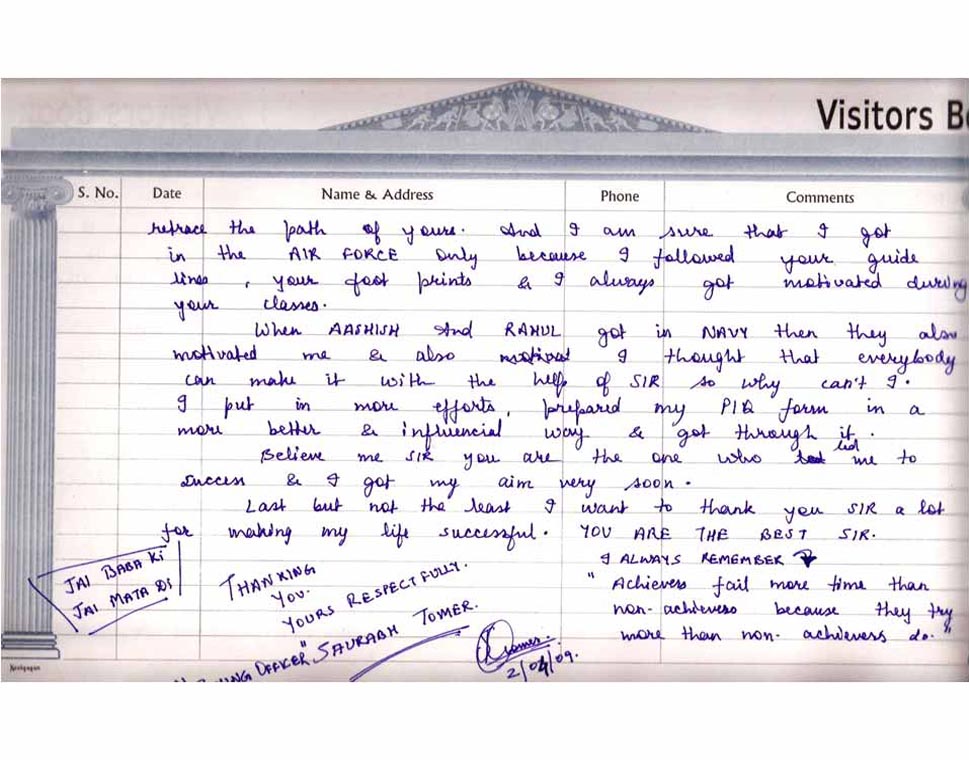 Visitors B
S. No.
Date
Name & Address
Phone
Comments
retrace the path of yours. And I am sure that I got
in the AIR FORCE only because I followed your guide
lines, your foot prints & I always got motivated during
your classes.
When AASHISH And RAHUL got in NAVY then they also
motivated me & also I thought that everybody
can make it with the help of SIR so why can't I.
I put in more efforts, prepared my PIQ form in a
more better & influencial way & got through it.
Believe me SIR you are the one who led me to
success & I got my aim very soon.
Last but not the least I want to thank you SIR a lot
for making my life successful. YOU ARE THE BEST SIR.
I ALWAYS REMEMBER
"Achievers fail more time than
non-achievers because they try
more than non-achievers do."
JAI BABA KI
JAI MATA DI
THANKING
YOU.
YOURS RESPECTFULLY.
OFFICER" SAURABH TOMER.
Tomer.
2/04/09.